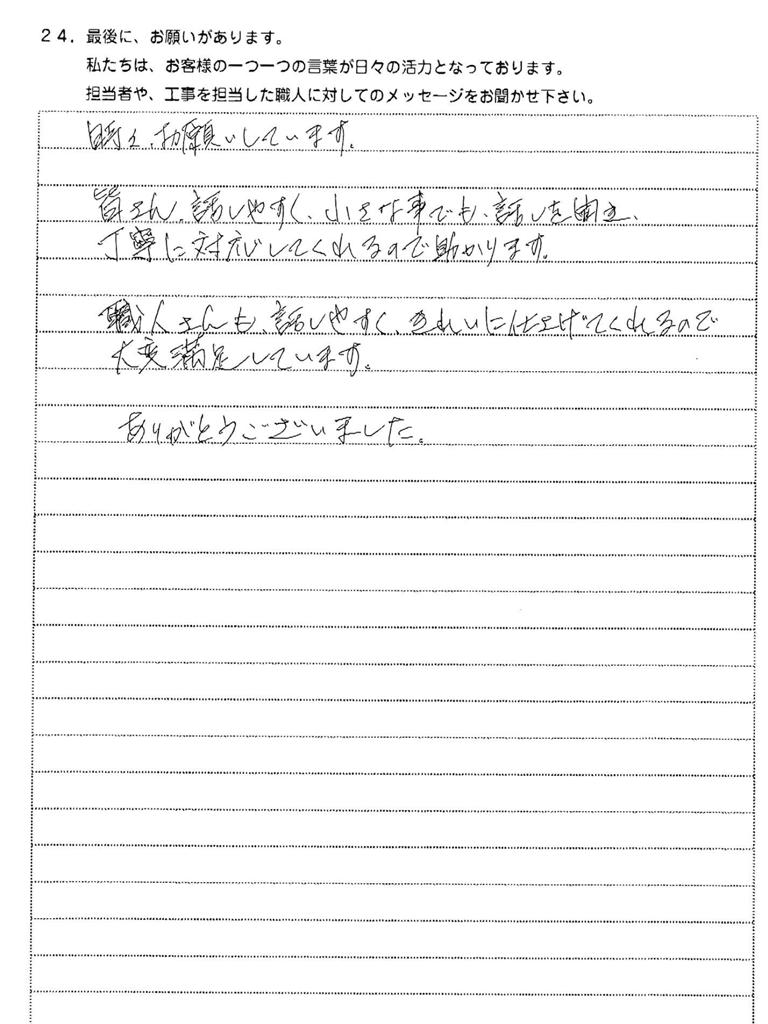 24．最後に、お願いがあります。
私たちは、お客様の一つ一つの言葉が日々の活力となっております。
担当者や、工事を担当した職人に対してのメッセージをお聞かせ下さい。
時々、お願いしています。
皆さん、話しやすく、小さな事でも、話しを聞き、
丁寧に対応してくれるので助かります。
職人さんも、話しやすく、きれいに仕上げてくれるので
大変満足しています。
ありがとうございました。